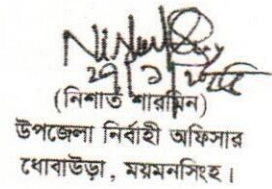 (নিশাত শারমিন)
উপজেলা নির্বাহী অফিসার
ধোবাউড়া, ময়মনসিংহ।